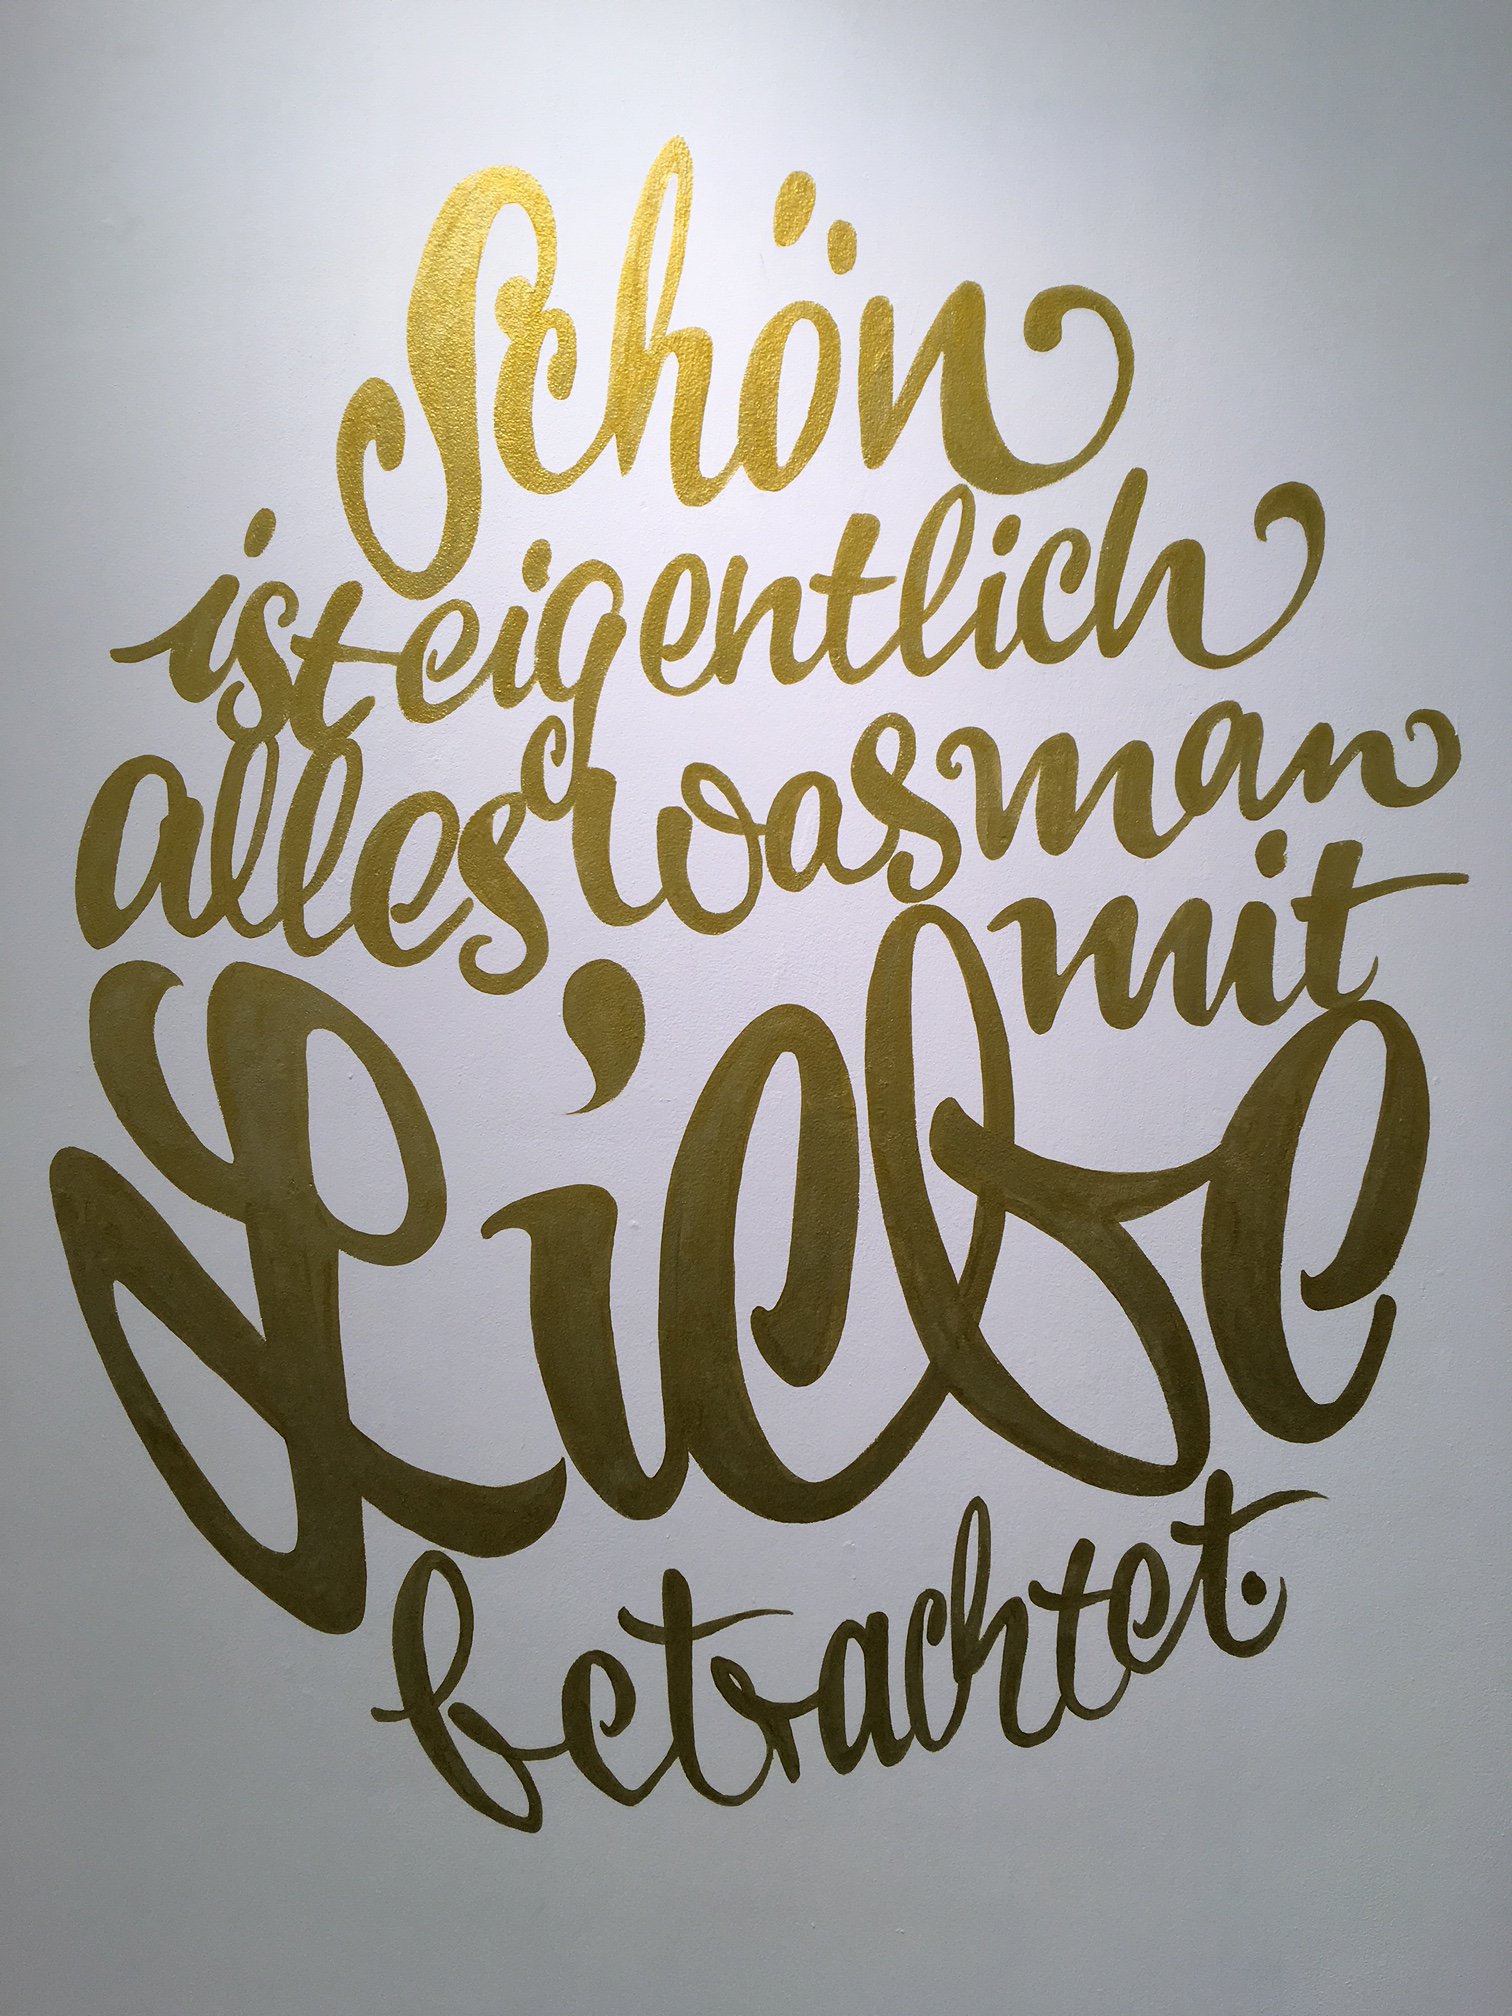 Schön
ist eigentlich
alles was man
mit
Liebe
betrachtet.